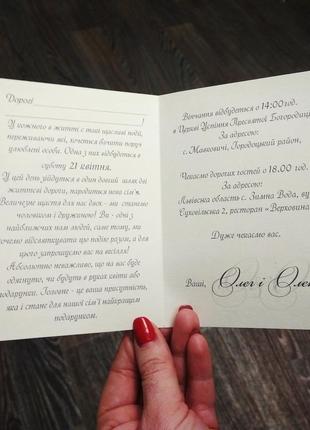 Дорогі
!
У кожного в житті є такі щасливі події,
переживаючи які, хочеться бачити поруч
улюблені особи. Одна з них відбудеться в
суботу 21 квітня.
У цей день зійдуться в один довгий шлях дві
життєві дороги, народиться нова сім'я.
Величезне щастя для нас двох - ми станемо
чоловіком і дружиною! Ви - одні з
найближчих нам людей, саме тому, ми
хочемо відсвяткувати цю подію разом, а для
цього запрошуємо вас на весілля!
Абсолютно неважливо, що на вас буде
одягнуто, чи будуть в руках квіти або
подарунки. Головне - це ваша присутність,
яка і стане для нашої сім'ї найкращим
подарунком.
Вінчання відбудеться о 14:00 год.
в Церкві Успіння Пресвятої Богородиці
За адресою:
с. Мавковичі, Городоцький район,
Чекаємо дорогих гостей о 18.00 год.
За адресою
Львівська область с. Зимна Вода, ву
Суховільська 2, ресторан «Верховина
Дуже чекаємо вас.
Ваші, Олег і Оле